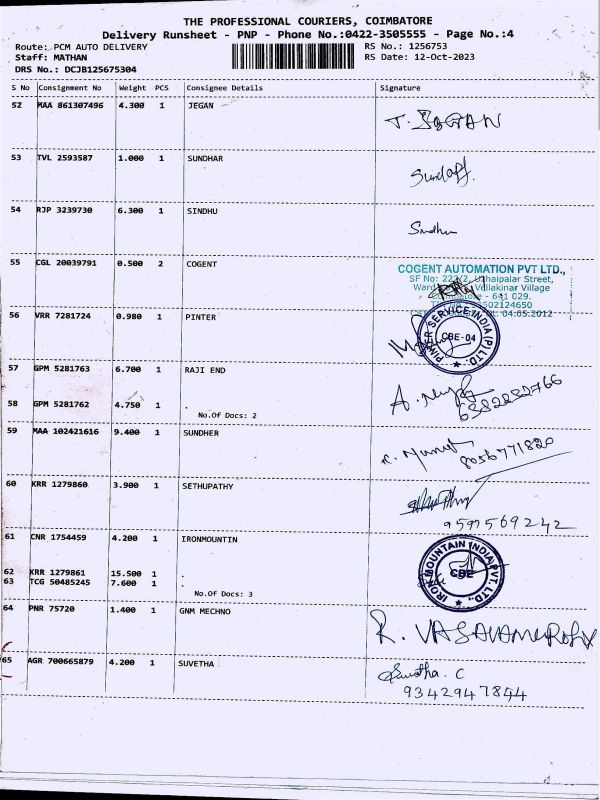 THE PROFESSIONAL COURIERS, COIMBATORE
Delivery Runsheet - PNP - Phone No.:0422-3505555 - Page No.:4
Route: PCM AUTO DELIVERY RS No.: 1256753
Staff: MATHAN RS Date: 12-Oct-2023
DRS No.: DCJB125675304
S No Consignment No Weight PCS Consignee Details Signature
52 MAA 861307496 4.300 1 JEGAN
J. JEGAN
53 TVL 2593587 1.000 1 SUNDHAR
54 RJP 3239730 6.300 1 SINDHU
Sindhu
55 CGL 20039791 0.500 2 COGENT
COGENT AUTOMATION PVT LTD.,
SF No: Street,
Ward Vellakinar Village
Coimbatore - 641 029.
04.05.2012
56 VRR 7281724 0.980 1 PINTER
SERVICE INDIA (P) LTD.
CBE-04
57 GPM 5281763 6.700 1 RAJI END
58 GPM 5281762 4.750 1 .
No.Of Docs: 2
6382232766
59 MAA 102421616 9.400 1 SUNDHER
8056771820
60 KRR 1279860 3.900 1 SETHUPATHY
9597569242
61 CNR 1754459 4.200 1 IRONMOUNTIN
IRON MOUNTAIN INDIA PVT. LTD.
CBE
62 KRR 1279861 15.500 1 .
63 TCG 50485245 7.600 1 .
No.Of Docs: 3
64 PNR 75720 1.400 1 GNM MECHNO
65 AGR 700665879 4.200 1 SUVETHA
Suvetha. C
9342947844